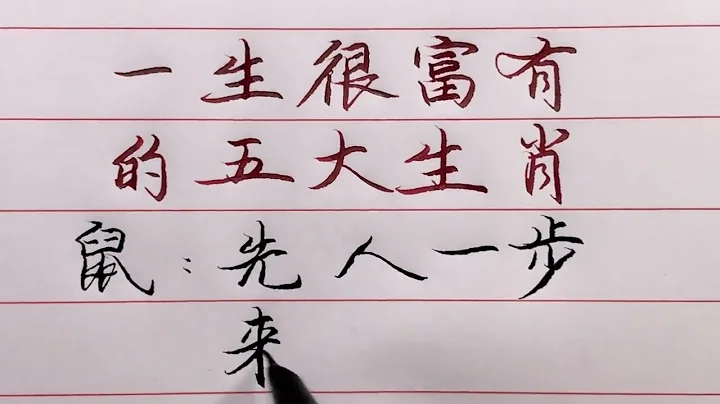 一生很富有
的五大生肖
鼠：先人一步
来